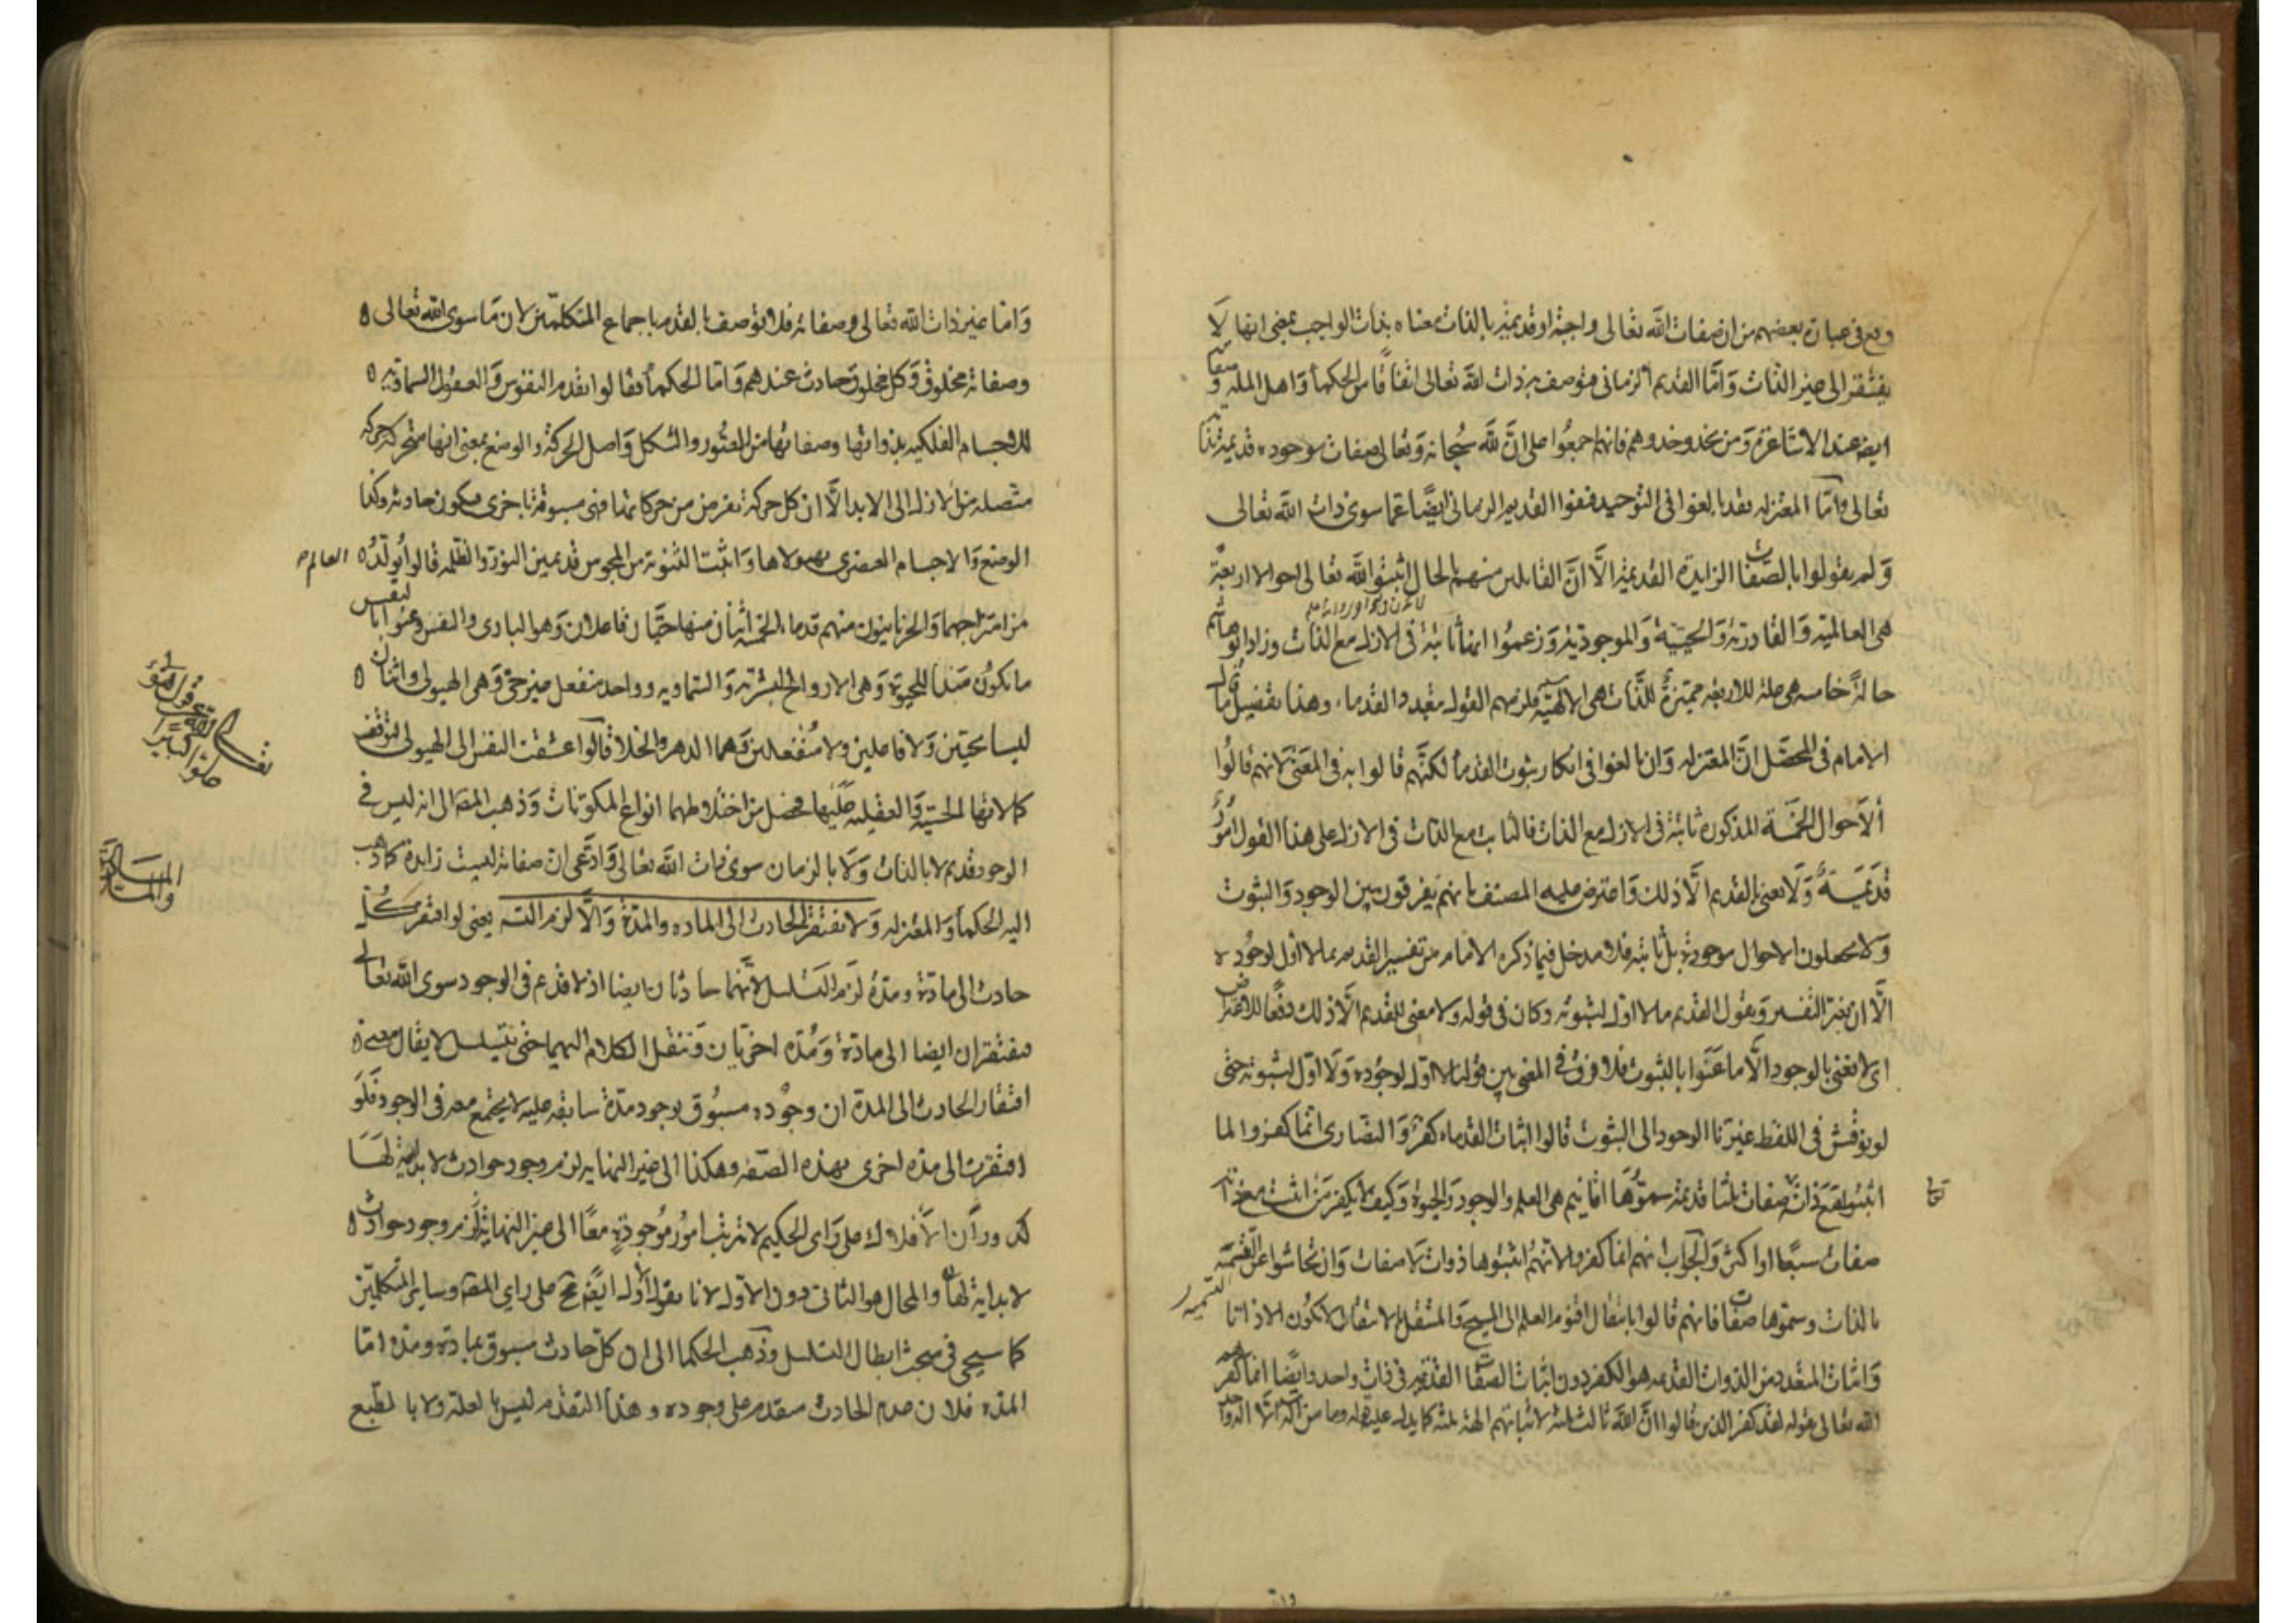 وقع في عبارة بعضهم من ان صفات الله تعالى واجبة او قديمة بالذات معناه بذات الواجب بمعنى انها لا
يفتقر الى غير الذات وَامَّا القديم الزماني فيوصف به ذات الله تعالى اتفاقًا من الحكماء وَاهل الملة وصفاته
ايضا عند الاشاعرة وَمن يحذو حذوهم فانهم اجمعُوا على انَّ لله سُبحانه وَتعالى صفات موجوده قديمة
تعالى وَامّا المعتزله فقد بالغوا في التوحيد فنفوا القديم الزماني ايضًا عما سوى ذات الله تعالى
وَلم يقولوا بالصّفات الزايدة القديمة الَّا انَّ القايلين منهم بالحال اثبتوا لله تعالى احوالا اربعة
هي العالمية وَالقادرية وَالحيية وَالموجودية وَزعموُا انها ثابتة في الازل مع الذات وزاد ابو هاشم
حالةً خامسه هي علة للاربعة مميّزةً للذّات هي الالهيّة فلزمهم القول بتعدد القدماء وهذا تفصيل ما قال
الامام في المحصّل انَّ المعتزله وَان بالغوا في انكار ثبوت القدماء لكنّهم قالوا به في المَعنى لانهم قالُوا
اَلاَحوال الخَمسَة المذكوره ثابتة في الازل مع الذات فالثابت مع الذات في الازل على هذا القول امورٌ
قَديمَةٌ وَلَا يعني بالقديم الَّا ذلك وَاعترض عليه المصنف بانهم يفرقون بين الوجود وَالثبوت
وَلا يجعلون الاحوال موجودة بل ثابتة فلا مدخل فيما ذكره الامام من تفسير القديم بما لا اول لوجُوده
الَّا ان يغير التفسير وَيقول القديم ما لا اول لثبوته وكان في قوله ولا معنى للقديم الَّا ذلك دفعًا للاعتراض
اي لا نعني بالوجود الَّا ما عَنَوا بالثبوت فلا فرق في المعنى بين قولنا لا اول لوجُوده وَلَا اوّل لثبوته حتى
لو نوقش في اللفظ غيرنا الوجود الى الثبوت قالوا اثبات القدماء كفرٌ وَالنصارى انما كفروا لما
اثبتوا مَعَ ذاته صفات ثلثا قديمة سموّهَا اقانيم هي العلم والوجود وَالحيوة وَكيف لا يكفر مَن اثبت مع ذاته
تعالى
صفات سبعًا او اكثر وَالجواب انهم انما كفروا لانهُم اثبتوها ذوات لَا صفات وَان تحاشوا عن التسمية
بالذات وسمّوها صفات فانهم قالوا بانتقال اقنوم العلم الى المسيح وَالمستقل بالانتقال لا يكون الا ذاتا
التسمية
وَاثبات المتعدد من الذوات القديمة هو الكفر دون اثبات الصفات القديمة في ذات واحد وايضًا انما كفرهم
الله تعالى بقوله لقد كفر الذين قالوا انَّ الله ثالث ثلثة لاثباتهم الهة ثلثة كما يدل عليه قوله وما من اله الّا اله واحد
وَامّا غير ذات الله تعالى وصفاته فلا يوصف بالقدم باجماع المتكلّمين لان مَا سوى الله تعالى
وصفاته مخلوق وَكل مخلوق حادث عندهم وَامّا الحكماء فقالوا بقدم النفوس وَالعقول السماوية
للاجسام الفلكيه بذواتها وصفاتها من المقدُور والشكل وَاصل الحركة والوضع بمعنى انها متحركة حركة
متّصله من الازل الى الابد الَّا ان كل حركة تفرض من حركاتها فهي مسبوقة باخرى فيكون حادثة وكذا
الوضع وَالاجسام العنصرى بهيولاها وَاثبت الثنوية من المجوس قديمين النور وَالظلمه قالوا تولدُ
العالم
من امتزاجهما وَالحرنانيون منهم قدماء الخمسة اثنان منها حيّان فاعلان وَهو البارى والنفس وعنوا بالنفس
ما يكوُن مَبدأ للحيوة وَهي الارواح البشرية وَالسّماويه وواحد منفعل غير حيّ وَهي الهيولى واثنان
ليسا بحيّين وَلا فاعلين ولا مُنفعلين وَهما الدهر والخلا قالوا عشقت النفس الى الهيولى لتوقف
كمالاتها الحسّية وَالعقلية عَلَيها فحصل من اختلاطهما انواع المكوّنات وَذهب المص الى انه ليس في
الوجود قديم لا بالذات وَلَا بالزمان سوى ذات الله تعالى وَادّعى ان صفاته ليست زايدة كما ذهب
اليه الحكماء وَالمعتزله وَلا يفتقر الحادث الى الماده والمدّة وَالَّا لزم التسلسل يعني لو افتقر كلّ
حادث الى مادّة ومدّة لَزم التسلسل لانّهما حادثان ايضا اذ لا قديم في الوجود سوى الله تعالى
فيفتقران ايضا الى مادّة وَمُدّه اخريان وَننقل الكلام اليهما حتى يتسلسل لا يقال معنى
افتقار الحادث الى المدة ان وجُوده مسبُوق بوجود مدّة سابقه عليه لا يجتمع معه في الوجود فَلَو
افتقرت الى مدّه اخرى بهذه الصّفه وهكذا الى غير النهايه لزم وجود حوادث لا بداية لَهَا
كدورآن الافلاك على رَاى الحكيم لا ترتّب امُور مَوجُودةٍ معًا الى غير النهاية لَزم وجود حوادث
لا بداية لهَا وَالمحال هو الثاني دون الاول لانا نقول الاول ايضًا مح على راى المص وساير المتكلّمين
كما سيجى في مبحث ابطال التسلسل وذهب الحكما الى ان كلّ حادث مسبوق بمادة ومدّه امّا
المدّه فلان عدم الحادث متقدم على وجوده وهذا التقدّم ليس بالعلة ولا بالطبع